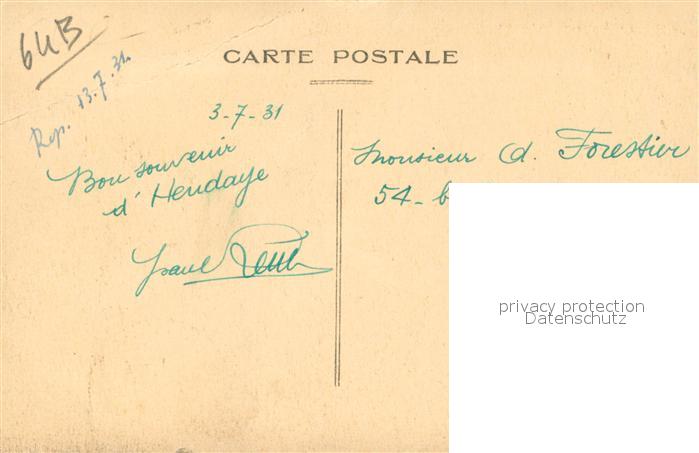 64B
Rep. 13.7.31.
CARTE POSTALE
3-7-31
Bon souvenir
d'Hendaye
Monsieur d. Forestier
54-b
privacy protection
Datenschutz